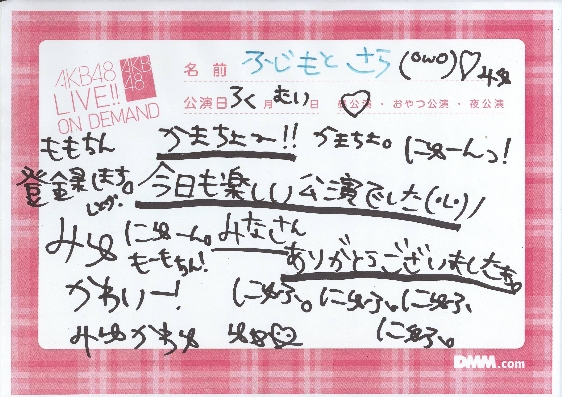 AKB48
LIVE!!
ON DEMAND
AKB
48
名前 ふじもと さら (owo)♡
公演日 ろく月 むい日 昼公演・おやつ公演・夜公演
ももちん
かまちょー!! かまちょ。 にゅーんっ!
登録しまち。
今日も楽しい公演でした
みゅ にゅーん。 みなさん
もーもちん!
ありがとうございました
かわいー! にゅふ。にゅふ。にゅふ。
みゅかわゆ にゅふ。
DMM.com